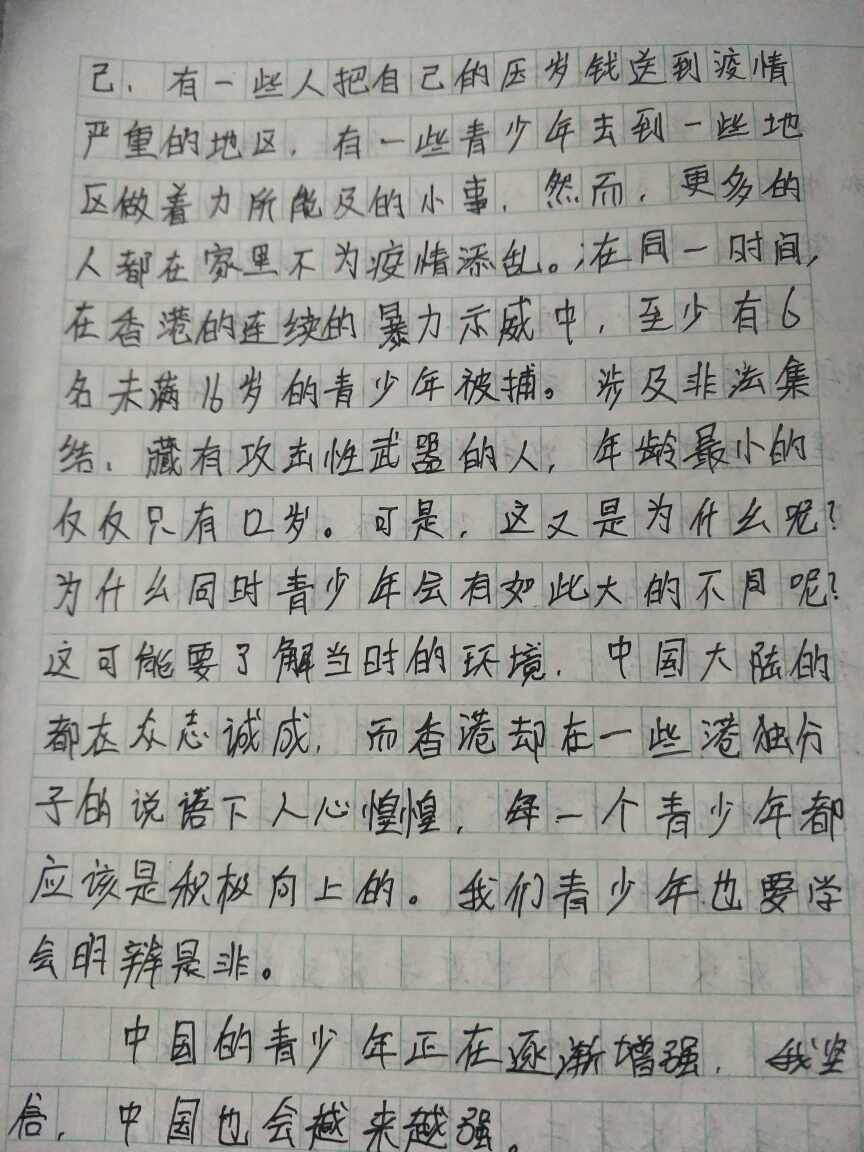 己，有一些人把自己的压岁钱送到疫情
严重的地区，有一些青少年去到一些地
区做着力所能及的小事，然而，更多的
人都在家里不为疫情添乱。在同一时间，
在香港的连续的暴力示威中，至少有6
名未满16岁的青少年被捕。涉及非法集
结、藏有攻击性武器的人，年龄最小的
仅仅只有12岁。可是，这又是为什么呢？
为什么同时青少年会有如此大的不同呢？
这可能要了解当时的环境，中国大陆的
都在众志诚成，而香港却在一些港独分
子的说语下人心惶惶，每一个青少年都
应该是积极向上的。我们青少年也要学
会明辨是非。
中国的青少年正在逐渐增强，我坚
信，中国也会越来越强。